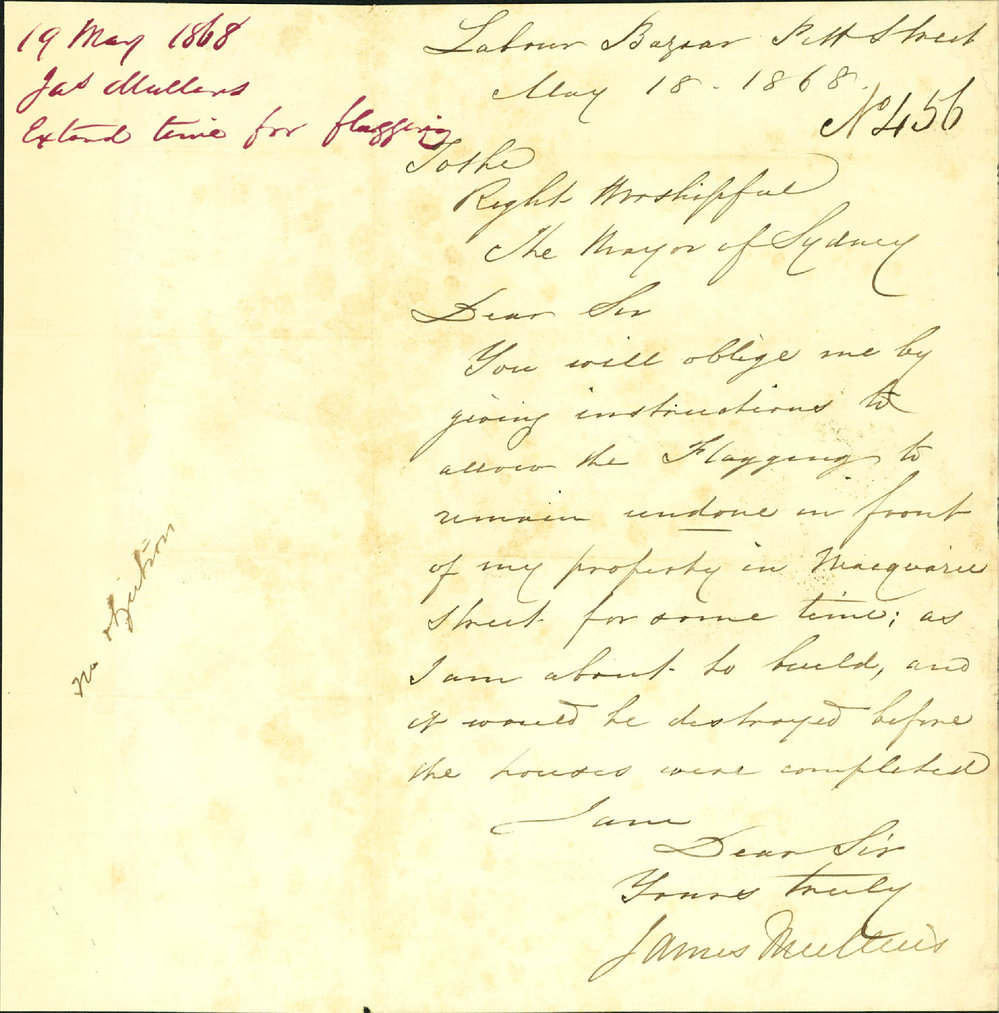 19 May 1868
Jas Mullens
Extend time for flagging
Labour Bazaar Pitt Street
May 18 - 1868.
No 456
To the
Right Worshipful
The Mayor of Sydney
Dear Sir
You will oblige me by
giving instructions to
allow the Flagging to
remain undone in front
of my property in Macquarie
Street for some time; as
I am about to build, and
it would be destroyed before
the houses were completed
I am
Dear Sir
Yours truly
James Mullens
No objection